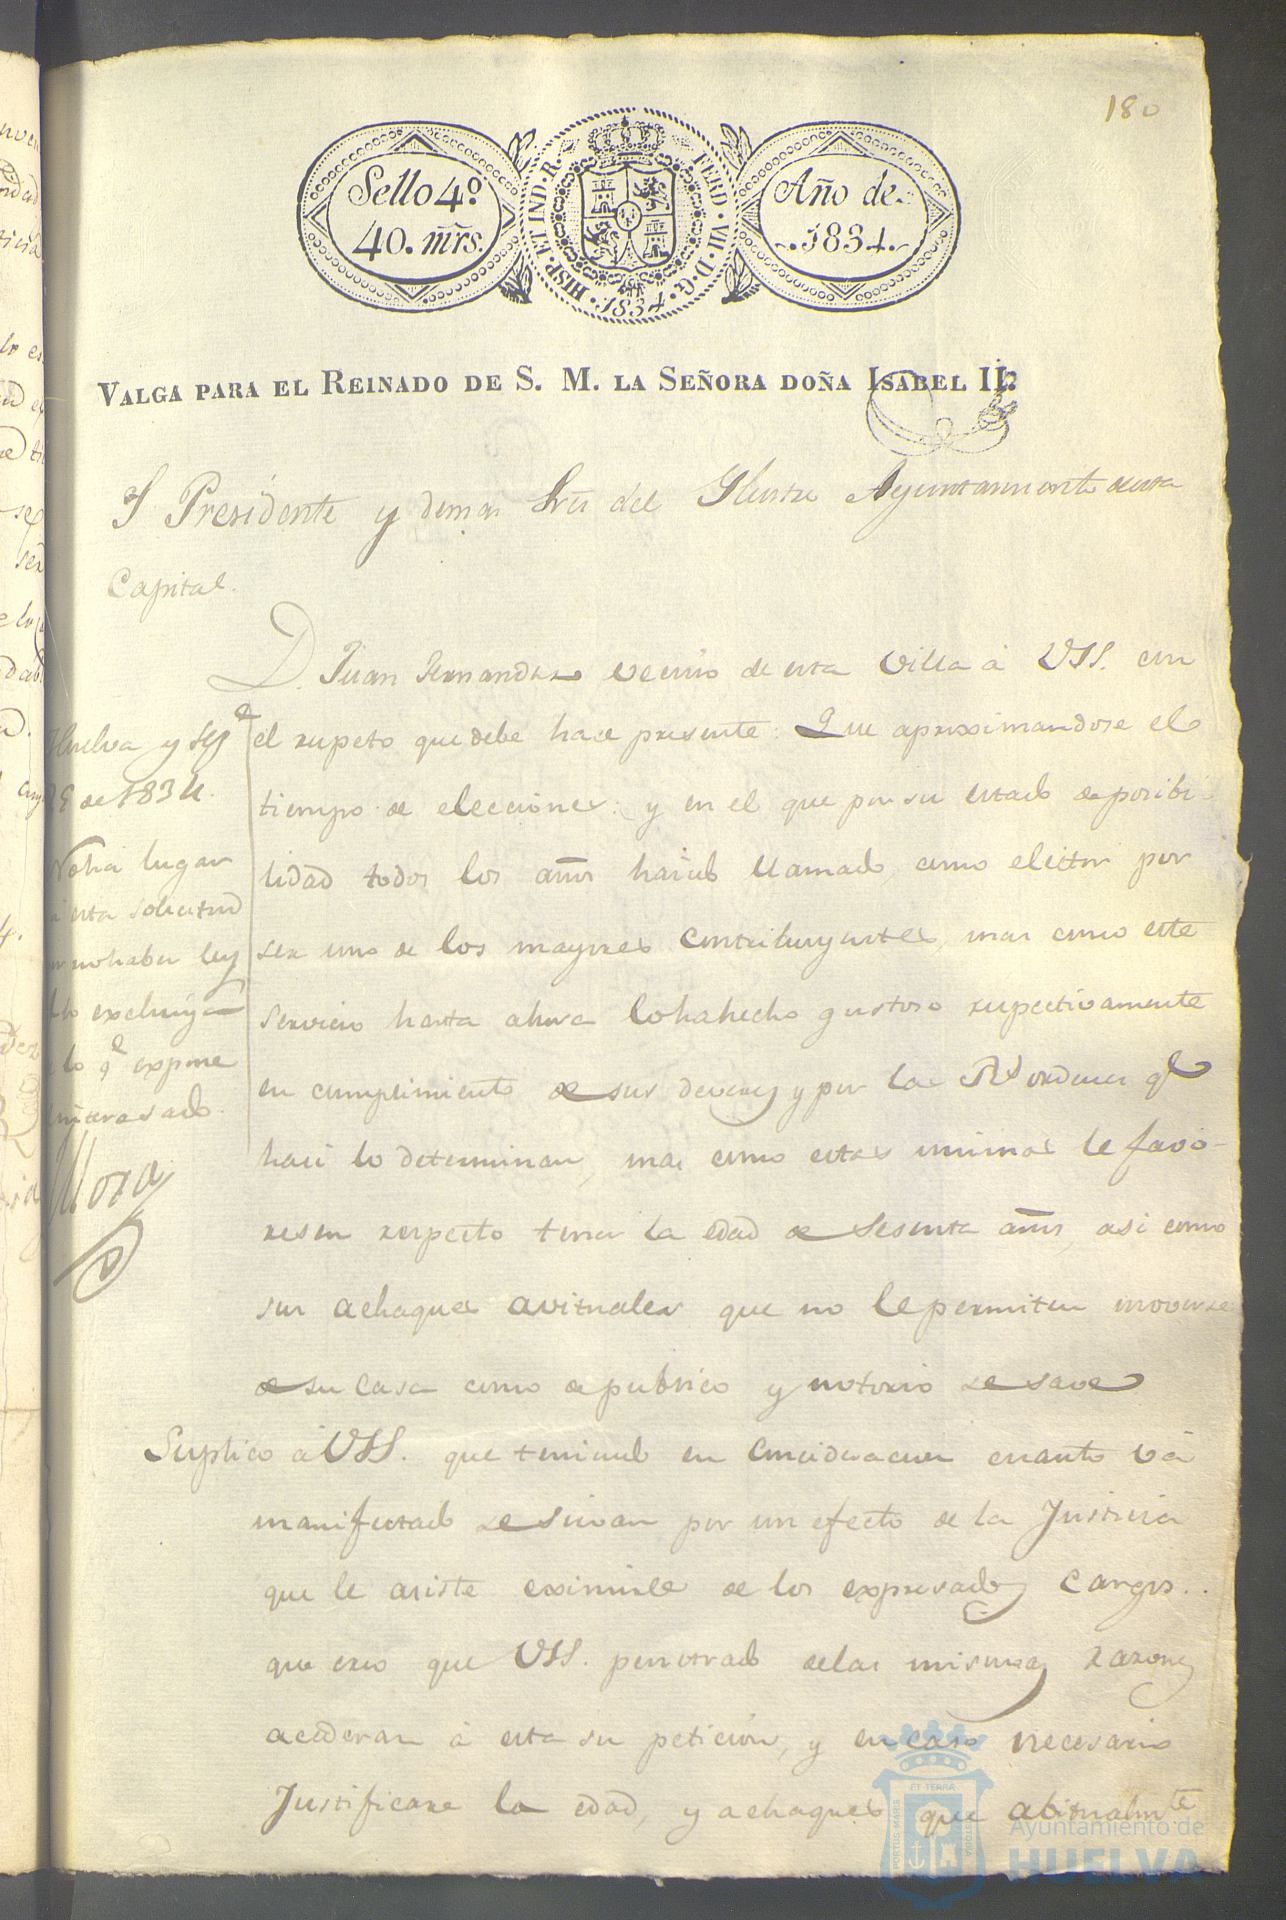 180
Sello 4º
40. mrs.
HISP. ET IND. R.
FERD. VII. D. G.
1834.
Año de
1834.
VALGA PARA EL REINADO DE S. M. LA SEÑORA DOÑA ISABEL II.
S Presidente y demas Sres del Ylustre Ayuntamiento de esta
Capital.
D. Juan Fernandez vecino de esta Villa á VSS. con
el respeto que debe hace presente: Que aproximandose el
tiempo de elecciones: y en el que por su estado de posibi-
lidad todos los años ha sido llamado, como elector por
ser uno de los mayores contribuyentes, mas como este
servicio hasta ahora lo ha hecho gustoso respectivamente
en cumplimiento de sus deveres y por las Rs ordenes qe
hasi lo determinan, mas como estas mismas le favo-
resen respecto tener la edad de Sesenta años, asi como
sus achaques avituales que no le permiten moverse
de su Casa como de publico y notorio se save
Suplico á VSS. que teniendo en Concideracion cuanto vá
manifestado se sirvan por un efecto de la Justicia
que le asiste eximirle de los expresados Cargos..
que creo que VSS. penetrado de las mismas razones
accederan á esta su peticion, y en caso necesario
Justificare la edad, y achaques que abitualmte
Huelva y Sepe
de 1834.
No ha lugar
á esta solicitud
por no haber ley
lo excluya
lo qe expone
interesado.
Mora
ET TERRA
PORTUS MARIS
CUSTODIA
Ayuntamiento de
HUELVA